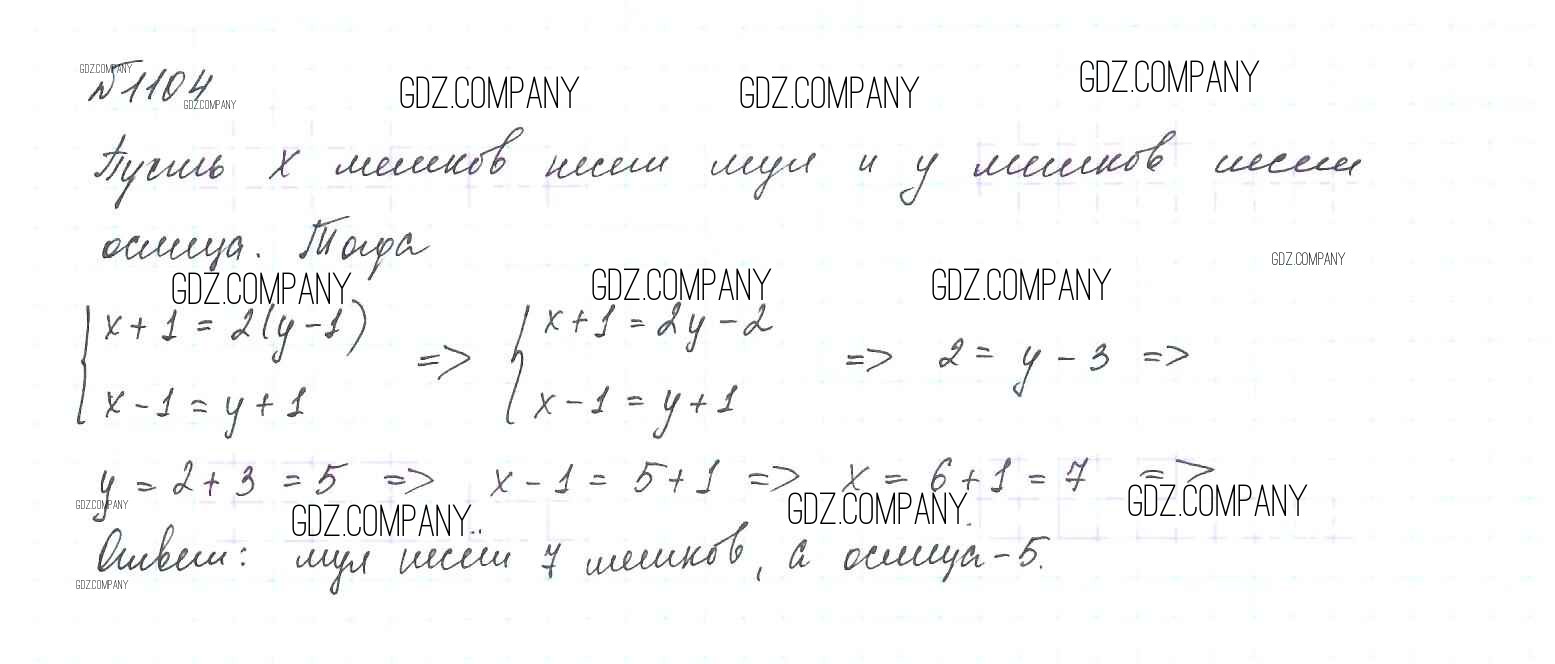 №1104
Пусть x мешков несет мул и y мешков несет
ослица. Тогда
x+1=2(y-1) => x+1=2y-2 => 2=y-3 =>
x-1=y+1 x-1=y+1
y=2+3=5 => x-1=5+1 => x=6+1=7 =>
Ответ: мул несет 7 мешков, а ослица-5.
GDZ.COMPANY
GDZ.COMPANY
GDZ.COMPANY
GDZ.COMPANY
GDZ.COMPANY
GDZ.COMPANY
GDZ.COMPANY
GDZ.COMPANY
GDZ.COMPANY
GDZ.COMPANY
GDZ.COMPANY
GDZ.COMPANY
GDZ.COMPANY
GDZ.COMPANY